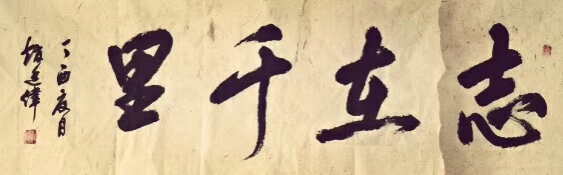 志在千里
丁酉夏月